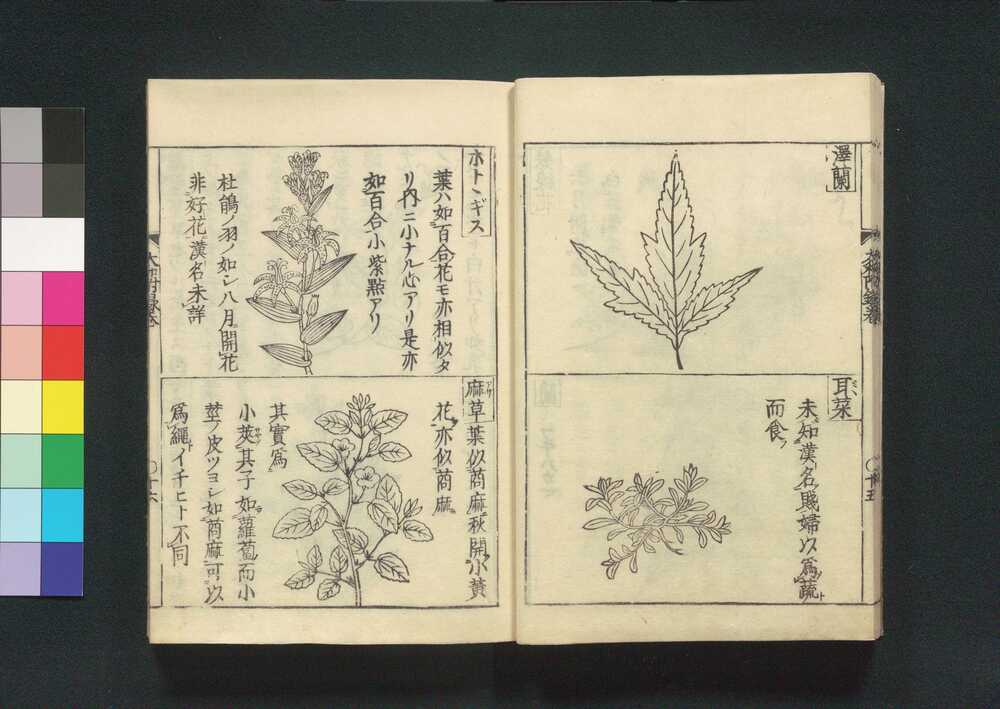 澤蘭
耳菜
未知漢名賤婦以爲蔬
而食
○十五
ホトヽギス
葉ハ如百合花モ亦相似タ
リ內ニ小ナル心アリ是亦
如百合小紫㸃アリ
杜鵑ノ羽ノ如シ八月開花
非好花漢名未詳
麻草葉似莔麻秋開小黃
花亦似莔麻
其實爲
小莢其子如蘿蔔而小
莖ノ皮ツヨシ如莔麻可以
爲繩イチヒト不同
○十六